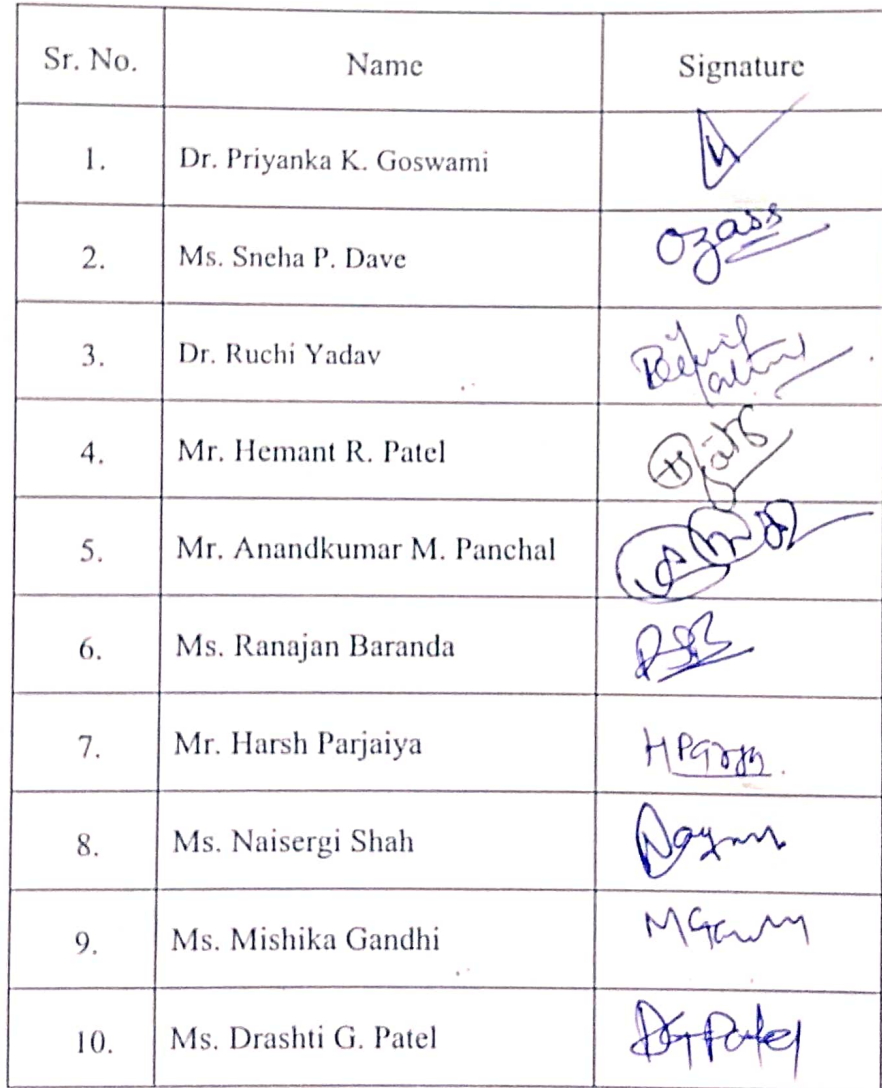 Sr. No. Name Signature
1. Dr. Priyanka K. Goswami
2. Ms. Sneha P. Dave
3. Dr. Ruchi Yadav
4. Mr. Hemant R. Patel
5. Mr. Anandkumar M. Panchal
6. Ms. Ranajan Baranda
7. Mr. Harsh Parjaiya
8. Ms. Naisergi Shah
9. Ms. Mishika Gandhi
10. Ms. Drashti G. Patel DGPatel